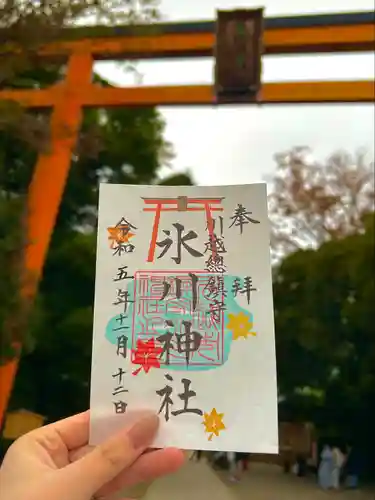 奉拝
川越総鎮守
氷川神社
令和五年十一月十二日